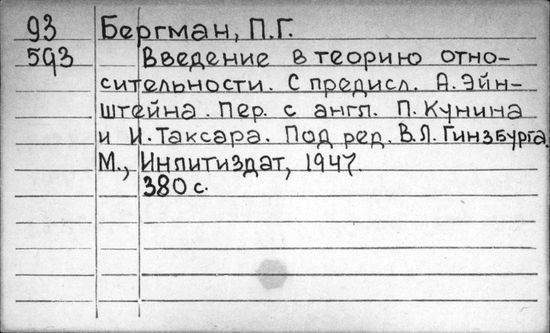 93 Бергман, П.Г.
593 Введение в теорию отно-
сительности. С предисл. А.Эйн-
штейна. Пер. с англ. П.Кунина
и И.Таксара. Под ред. В.Л.Гинзбурга.
М., Инлитиздат, 1947.
380 с.